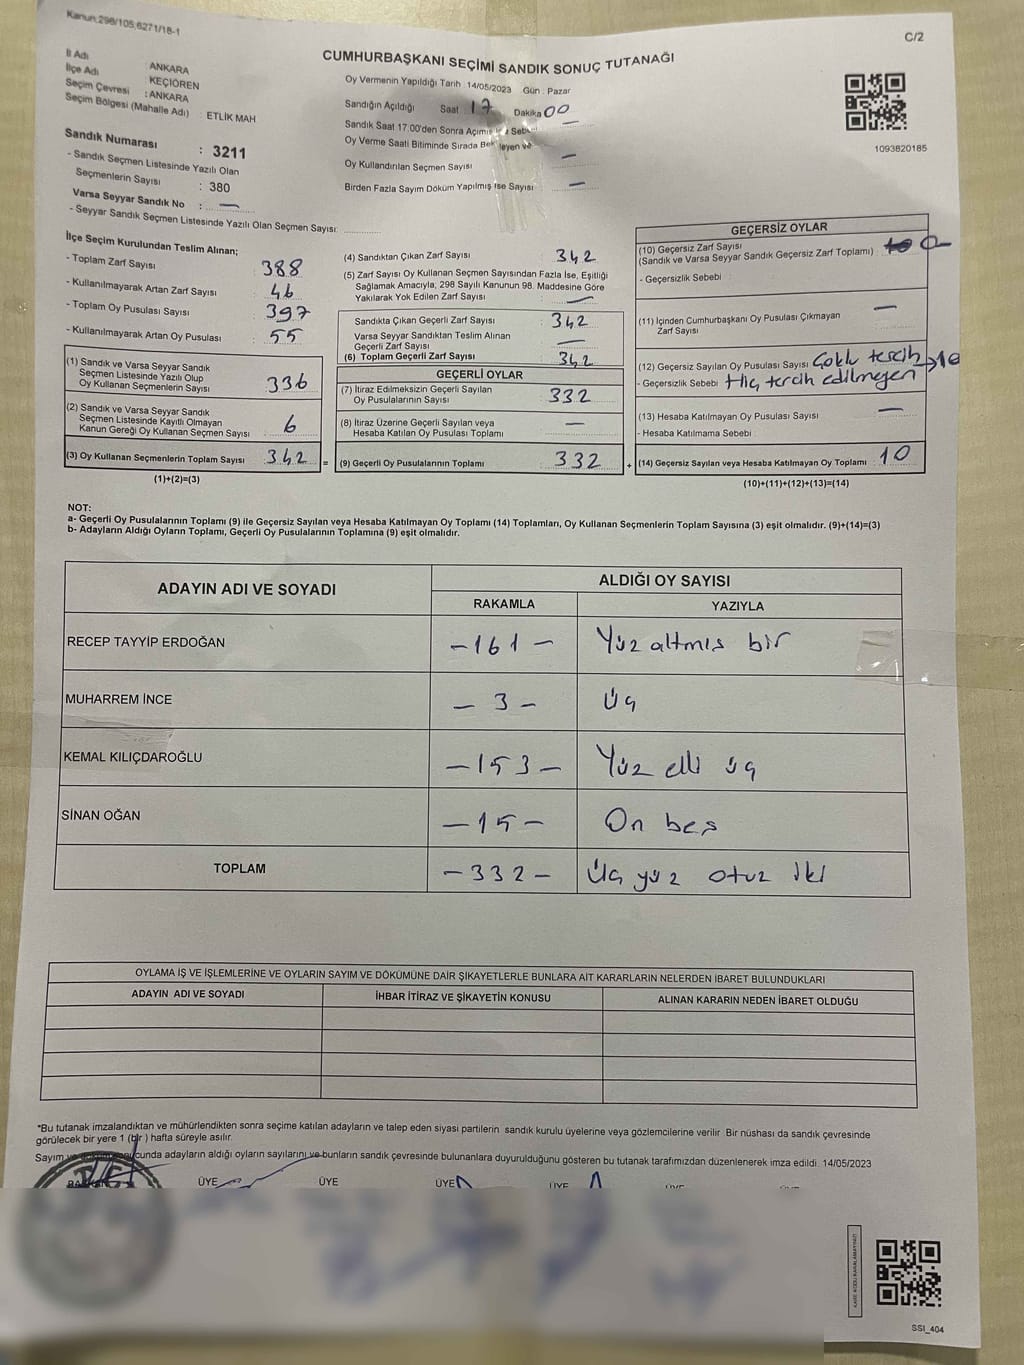 Kanun:298/105,6271/18-1
C/2
CUMHURBAŞKANI SEÇİMİ SANDIK SONUÇ TUTANAĞI
İl Adı : ANKARA
İlçe Adı : KEÇİÖREN
Seçim Çevresi : ANKARA
Seçim Bölgesi (Mahalle Adı) : ETLİK MAH
Sandık Numarası : 3211
- Sandık Seçmen Listesinde Yazılı Olan
Seçmenlerin Sayısı : 380
Varsa Seyyar Sandık No : —
- Seyyar Sandık Seçmen Listesinde Yazılı Olan Seçmen Sayısı:
Oy Vermenin Yapıldığı Tarih 14/05/2023 Gün : Pazar
Sandığın Açıldığı Saat 17 Dakika 00
Sandık Saat 17:00'den Sonra Açılmış —
Oy Verme Saati Bitiminde Sırada Bekleyen ve
Oy Kullandırılan Seçmen Sayısı —
Birden Fazla Sayım Döküm Yapılmış İse Sayısı —
1093820185
İlçe Seçim Kurulundan Teslim Alınan;
- Toplam Zarf Sayısı 388
- Kullanılmayarak Artan Zarf Sayısı 46
- Toplam Oy Pusulası Sayısı 397
- Kullanılmayarak Artan Oy Pusulası 55
(1) Sandık ve Varsa Seyyar Sandık
Seçmen Listesinde Yazılı Olup
Oy Kullanan Seçmenlerin Sayısı 336
(2) Sandık ve Varsa Seyyar Sandık
Seçmen Listesinde Kayıtlı Olmayan
Kanun Gereği Oy Kullanan Seçmen Sayısı 6
(3) Oy Kullanan Seçmenlerin Toplam Sayısı 342
(1)+(2)=(3)
(4) Sandıktan Çıkan Zarf Sayısı 342
(5) Zarf Sayısı Oy Kullanan Seçmen Sayısından Fazla İse, Eşitliği
Sağlamak Amacıyla, 298 Sayılı Kanunun 98. Maddesine Göre
Yakılarak Yok Edilen Zarf Sayısı —
Sandıkta Çıkan Geçerli Zarf Sayısı 342
Varsa Seyyar Sandıktan Teslim Alınan
Geçerli Zarf Sayısı —
(6) Toplam Geçerli Zarf Sayısı 342
GEÇERLİ OYLAR
(7) İtiraz Edilmeksizin Geçerli Sayılan
Oy Pusulalarının Sayısı 332
(8) İtiraz Üzerine Geçerli Sayılan veya
Hesaba Katılan Oy Pusulası Toplamı —
= (9) Geçerli Oy Pusulalarının Toplamı 332
GEÇERSİZ OYLAR
(10) Geçersiz Zarf Sayısı
(Sandık ve Varsa Seyyar Sandık Geçersiz Zarf Toplamı)
- Geçersizlik Sebebi :
(11) İçinden Cumhurbaşkanı Oy Pusulası Çıkmayan
Zarf Sayısı —
(12) Geçersiz Sayılan Oy Pusulası Sayısı Çoklu tercih →10
- Geçersizlik Sebebi : Hiç tercih edilmeyen
(13) Hesaba Katılmayan Oy Pusulası Sayısı —
- Hesaba Katılmama Sebebi :
+ (14) Geçersiz Sayılan veya Hesaba Katılmayan Oy Toplamı 10
(10)+(11)+(12)+(13)=(14)
NOT:
a- Geçerli Oy Pusulalarının Toplamı (9) ile Geçersiz Sayılan veya Hesaba Katılmayan Oy Toplamı (14) Toplamları, Oy Kullanan Seçmenlerin Toplam Sayısına (3) eşit olmalıdır. (9)+(14)=(3)
b- Adayların Aldığı Oyların Toplamı, Geçerli Oy Pusulalarının Toplamına (9) eşit olmalıdır.
ADAYIN ADI VE SOYADI ALDIĞI OY SAYISI
RAKAMLA YAZIYLA
RECEP TAYYİP ERDOĞAN -161- Yüz altmış bir
MUHARREM İNCE -3- Üç
KEMAL KILIÇDAROĞLU -153- Yüz elli üç
SİNAN OĞAN -15- On beş
TOPLAM -332- Üç yüz otuz iki
OYLAMA İŞ VE İŞLEMLERİNE VE OYLARIN SAYIM VE DÖKÜMÜNE DAİR ŞİKAYETLERLE BUNLARA AİT KARARLARIN NELERDEN İBARET BULUNDUKLARI
ADAYIN ADI VE SOYADI İHBAR İTİRAZ VE ŞİKAYETİN KONUSU ALINAN KARARIN NEDEN İBARET OLDUĞU
*Bu tutanak imzalandıktan ve mühürlendikten sonra seçime katılan adayların ve talep eden siyasi partilerin sandık kurulu üyelerine veya gözlemcilerine verilir. Bir nüshası da sandık çevresinde
görülecek bir yere 1 (bir ) hafta süreyle asılır.
Sayım ve cunda adayların aldığı oyların sayılarını ve bunların sandık çevresinde bulunanlara duyurulduğunu gösteren bu tutanak tarafımızdan düzenlenerek imza edildi. 14/05/2023
ÜYE ÜYE ÜYE ÜYE
SSI_404